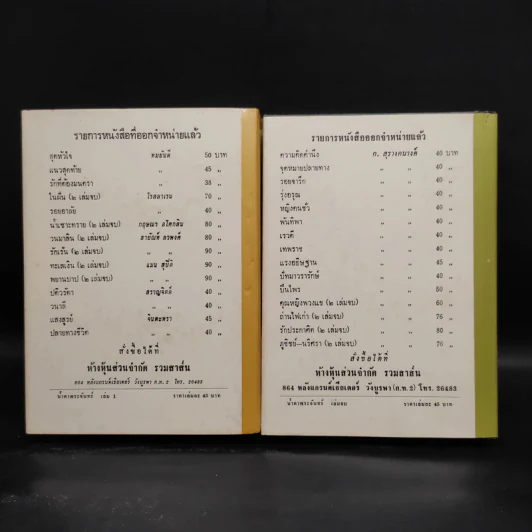 รายการหนังสือที่ออกจำหน่ายแล้ว
ฤดูหัวใจ ทมยันตี 50 บาท
แนวสุดท้าย ,, 45 ,,
รักที่ต้องมนตรา ,, 38 ,,
ในฝัน (๒ เล่มจบ) โรสลาเรน 70 ,,
รอยอาลัย ,, 40 ,,
น้ำเซาะทราย (๒ เล่มจบ) กฤษณา อโศกสิน 80 ,,
วนมาลิน (๒ เล่มจบ) 80 ,,
รักเร้น (๒ เล่มจบ) ,, ,, 90 ,,
ทะเลเงิน (๒ เล่มจบ) 90 ,,
พยานบาป (๒ เล่มจบ) ,, ,, 90 ,,
ปดิวรัดา สราญจิตต์ 40 ,,
วนาลี ,, 40 ,,
แสงสูรย์ จินตะหรา 45 ,,
ปลายทางชีวิต ,, 40 ,,
สั่งซื้อได้ที่
ห้างหุ้นส่วนจำกัด รวมสาส์น
864 หลังแกรนด์เธียเตอร์ วังบูรพา ก.ท. 2 โทร. 26483
น้ำตาพระจันทร์ เล่ม 1 ราคาเล่มละ 45 บาท
รายการหนังสือออกจำหน่ายแล้ว
ความคิดคำนึง ก. สุรางคนางค์ 40 บาท
จุดหมายปลายทาง ,, ,, 40 ,,
รอยจารึก ,, ,, 40 ,,
รุ่งอรุณ ,, ,, 40 ,,
หญิงคนชั่ว ,, ,, 40 ,,
พันทิพา ,, ,, 40 ,,
เรวดี ,, ,, 40 ,,
เทพราช ,, ,, 40 ,,
แรงอธิษฐาน ,, ,, 45 ,,
ปัทมาวรารักษ์ ,, ,, 40 ,,
ปิ่นไพร ,, ,, 50 ,,
คุณหญิงพวงแข (๒ เล่มจบ) ,, ,, 60 ,,
ถ่านไฟเก่า (๒ เล่มจบ) ,, ,, 76 ,,
รักประกาศิต (๒ เล่มจบ) ,, ,, 80 ,,
ภูชิชย์–นริศรา (๒ เล่มจบ) ,, ,, 76 ,,
สั่งซื้อได้ที่
ห้างหุ้นส่วนจำกัด รวมสาส์น
864 หลังแกรนด์เธียเตอร์ วังบูรพา (ก.ท. 2) โทร. 26483
น้ำตาพระจันทร์ เล่มจบ ราคาเล่มละ 45 บาท